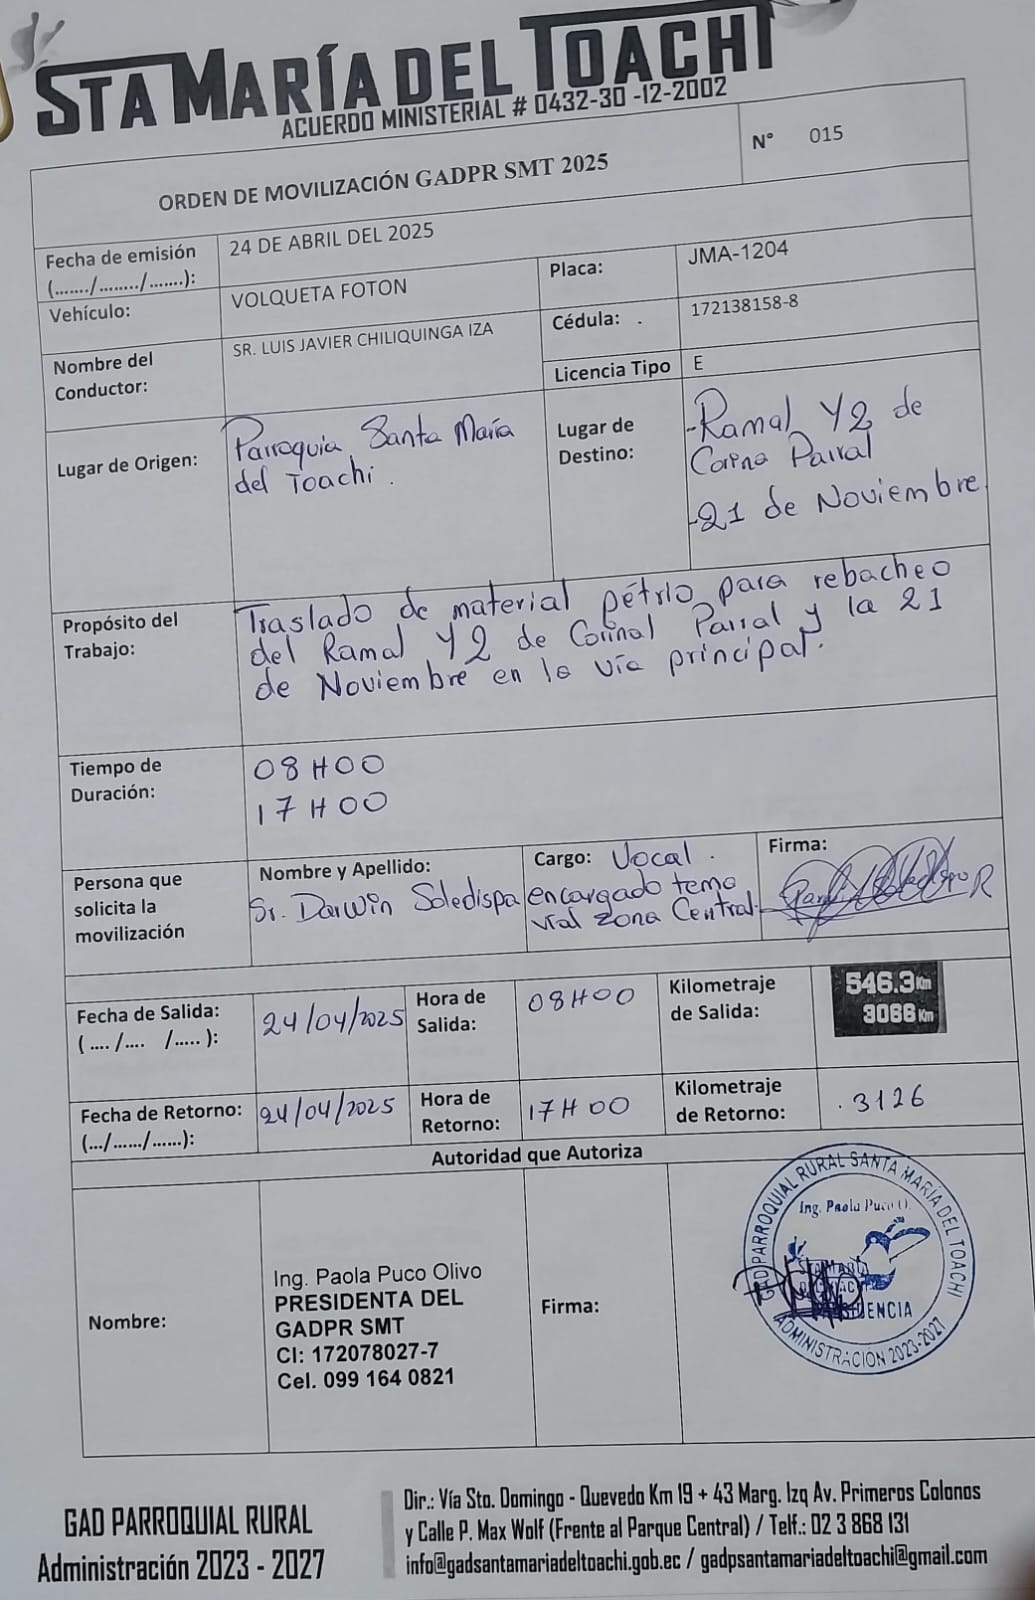 STA MARÍA DEL TOACHI
ACUERDO MINISTERIAL # 0432-30 -12-2002
ORDEN DE MOVILIZACIÓN GADPR SMT 2025
N° 015
Fecha de emisión
(......./......../.......):
24 DE ABRIL DEL 2025
Vehículo:
VOLQUETA FOTON
Placa:
JMA-1204
Nombre del
Conductor:
SR. LUIS JAVIER CHILIQUINGA IZA
Cédula: .
172138158-8
Licencia Tipo
E
Lugar de Origen:
Parroquia Santa María
del Toachi.
Lugar de
Destino:
-Ramal Y2 de
Corina Parral
-21 de Noviembre
Propósito del
Trabajo:
Traslado de material pétrio para rebacheo
del Ramal Y2 de Corinal Parral y la 21
de Noviembre en la vía principal.
Tiempo de
Duración:
08H00
17H00
Persona que
solicita la
movilización
Nombre y Apellido:
Sr. Darwin Soledispa
Cargo: Vocal.
encargado tema
vial zona Central.
Firma:
Fecha de Salida:
( .... /.... /..... ):
24/04/2025
Hora de
Salida:
08H00
Kilometraje
de Salida:
546.3Km
3066Km
Fecha de Retorno:
(.../....../......):
24/04/2025
Hora de
Retorno:
17H00
Kilometraje
de Retorno:
. 3126
Autoridad que Autoriza
Nombre:
Ing. Paola Puco Olivo
PRESIDENTA DEL
GADPR SMT
CI: 172078027-7
Cel. 099 164 0821
Firma:
GAD PARROQUIAL RURAL SANTA MARÍA DEL TOACHI
Ing. Paola Puco O.
ADMINISTRACIÓN 2023-2027
GAD PARROQUIAL RURAL
Administración 2023 - 2027
Dir.: Vía Sto. Domingo - Quevedo Km 19 + 43 Marg. Izq Av. Primeros Colonos
y Calle P. Max Wolf (Frente al Parque Central) / Telf.: 02 3 868 131
info@gadsantamariadeltoachi.gob.ec / gadpsantamariadeltoachi@gmail.com